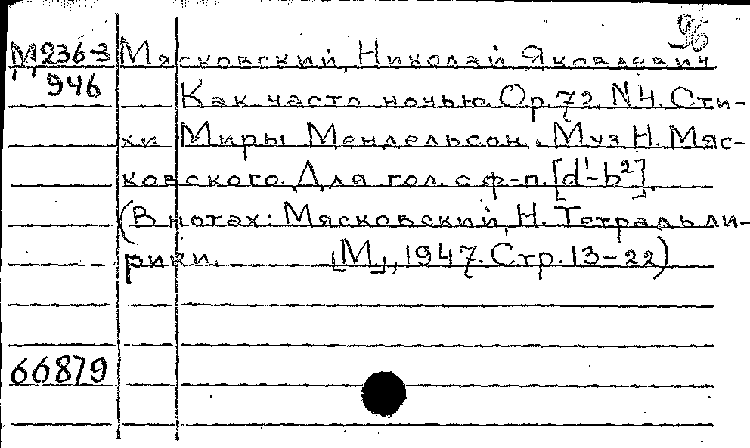 96
М 236-3 Мясковский, Николай Яковлевич
946 Как часто ночью. Op. 72 N 4. Сти-
хи Миры Мендельсон. Муз. Н. Мяс-
ковского. Для гол. с ф-п. [d¹-b²].
(В нотах: Мясковский, Н. Тетрадь ли-
рики. [М.], 1947. Стр. 13-22)
66879